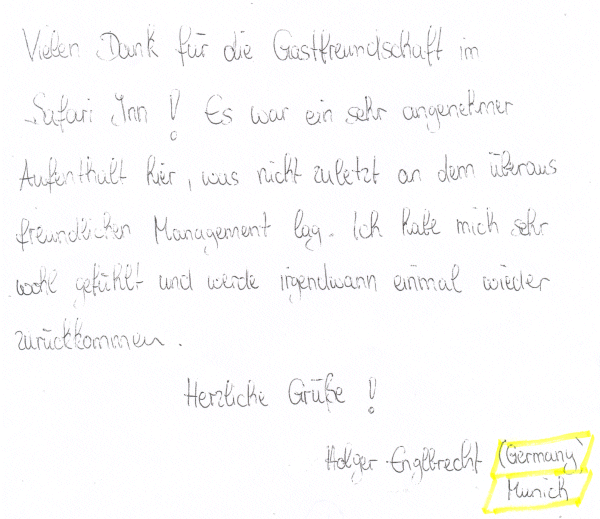 Vielen Dank für die Gastfreundschaft im
Safari Inn! Es war ein sehr angenehmer
Aufenthalt hier, was nicht zuletzt an dem überaus
freundlichen Management lag. Ich habe mich sehr
wohl gefühlt und werde irgendwann einmal wieder
zurückkommen.
Herzliche Grüße!
Holger Englbrecht (Germany)
Munich